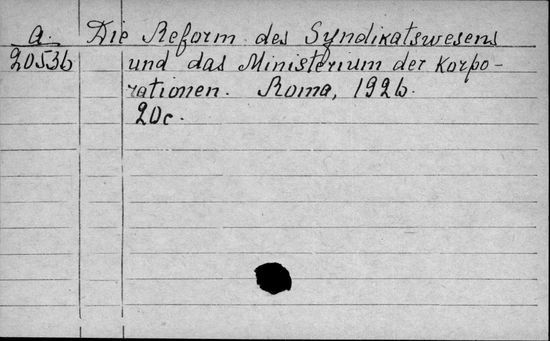 a. Die Reform des Syndikatswesens
20536 und das Ministerium der Korpo-
rationen. Roma, 1926.
20c.